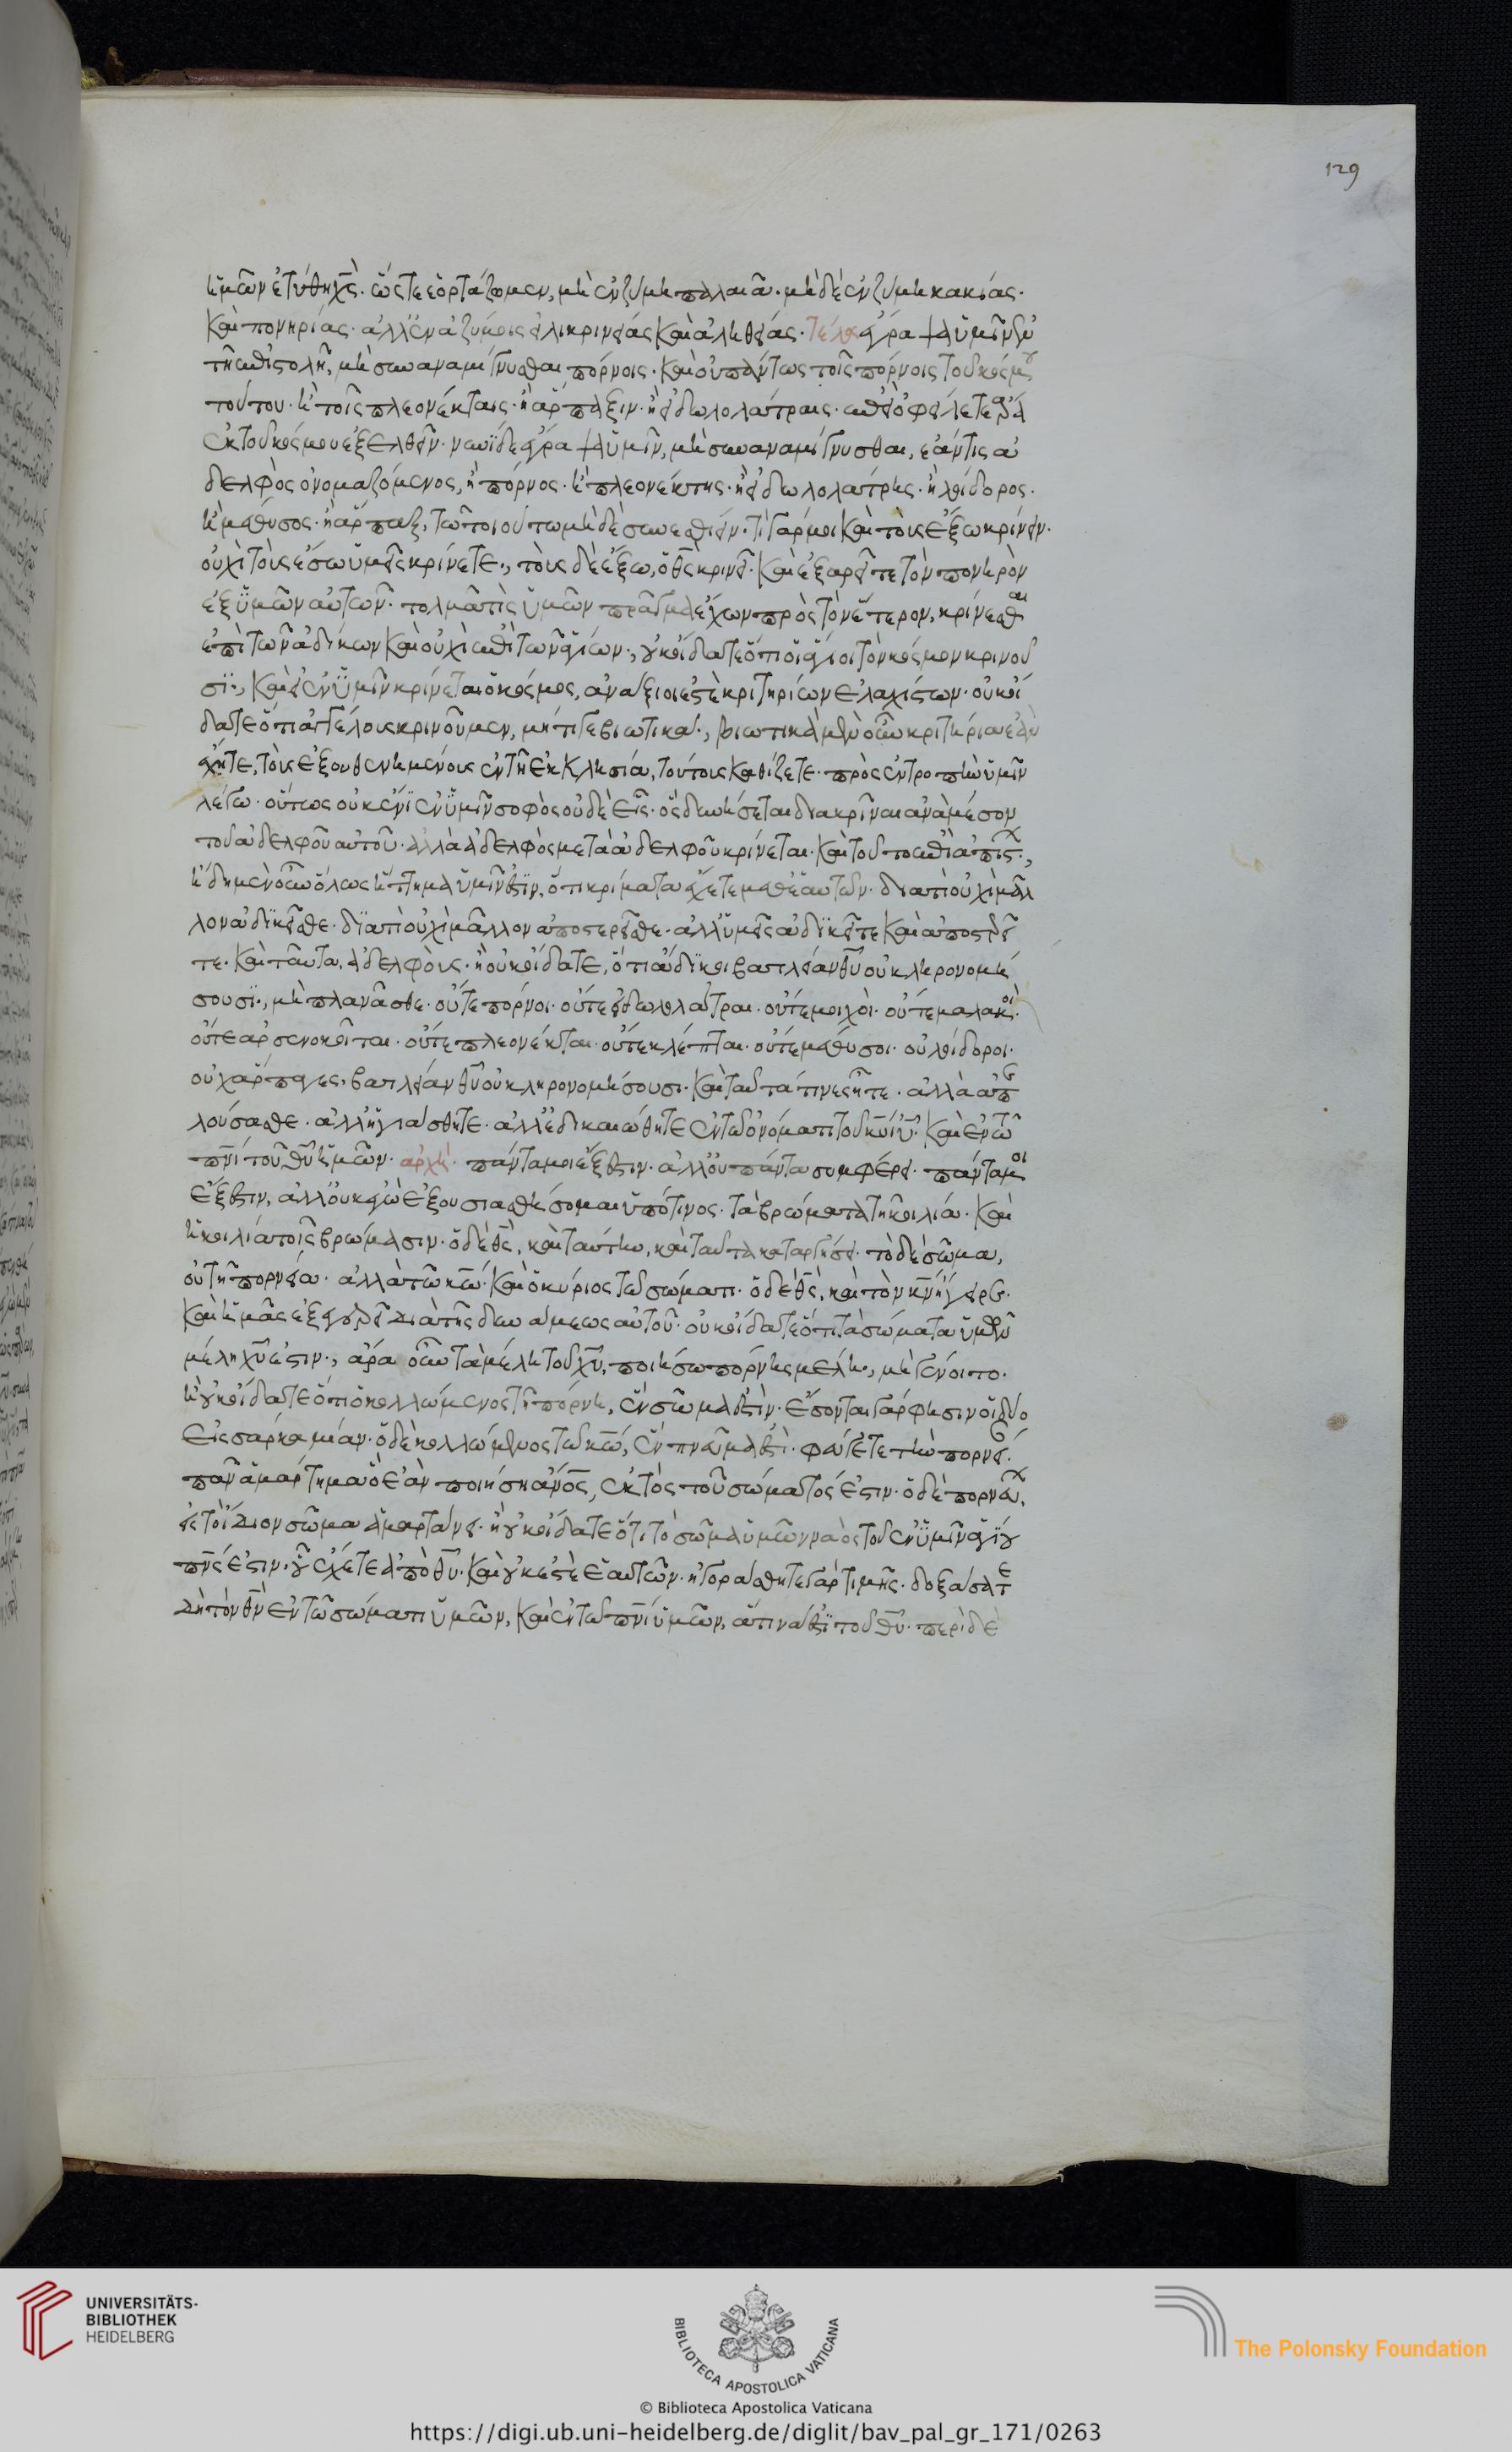 129
ἡμῶν ἐτύθη χς̅. ὥστε ἑορτάζωμεν, μὴ ἐν ζύμη παλαιᾶ. μὴ δὲ ἐν ζύμη κακίας.
καὶ πονηρίας. ἀλλ' ἐν ἀζύμοις εἰλικρινείας καὶ ἀληθείας. τέλος ἔγραψα ὑμῖν ἐν
τῆ ἐπιστολῆ, μὴ συναναμίγνυσθαι πόρνοις. καὶ οὐ πάντως τοῖς πόρνοις τοῦ κόσμου
τούτου. ἢ τοῖς πλεονέκταις. ἢ ἅρπαξιν. ἢ εἰδωλολάτραις. ἐπεὶ ὀφείλετε ἄρα
ἐκ τοῦ κόσμου ἐξελθεῖν. νυνῒ δὲ ἔγραψα ὑμῖν, μὴ συναναμίγνυσθαι, ἐάν τις ἀ
δελφὸς ὀνομαζόμενος, ἢ πόρνος. ἢ πλεονέκτης. ἢ εἰδωλολάτρης. ἢ λοίδορος.
ἢ μέθυσος. ἢ ἅρπαξ, τῶ τοιούτω μὴ δὲ συνεσθίειν. τί γάρ μοι καὶ τοὺς ἔξω κρίνειν.
οὐχὶ τοὺς ἔσω ὑμεῖς κρίνετε., τοὺς δὲ ἔξω, ὁ θς̅ κρινεῖ. καὶ ἐξαρεῖτε τὸν πονηρὸν
ἐξ ὑμῶν αὐτῶν. τολμᾶ τὶς ὑμῶν πρᾶγμα ἔχων πρὸς τὸν ἕτερον, κρίνεσθαι
ἐπὶ τῶν ἀδίκων καὶ οὐχὶ ἐπὶ τῶν ἁγίων., οὐκ οἴδατε ὅτι οἱ ἅγιοι τὸν κόσμον κρινοῦ
σϊ., καὶ εἰ ἐν ὑμῖν κρίνεται ὁ κόσμος, ἀνάξιοι ἐστὲ κριτηρίων ἐλαχίστων. οὐκ οἴ
δατε ὅτι ἀγγέλους κρινοῦμεν, μήτι γε βιωτικά., βιωτικὰ μὲν οὖν κριτήρια ἐὰν
ἔχητε, τοὺς ἐξουθενημένους ἐν τῆ ἐκκλησία, τούτους καθίζετε. πρὸς ἐντροπὴν ὑμῖν
λέγω. οὕτως οὐκ ἔνϊ ἐν ὑμῖν σοφὸς οὐδὲ εἷς. ὃς δυνήσεται διακρῖναι ἀνὰ μέσον
τοῦ ἀδελφοῦ αὐτοῦ. ἀλλὰ ἀδελφὸς μετὰ ἀδελφοῦ κρίνεται. καὶ τοῦτο ἐπὶ ἀπίστων.,
ἤδη μὲν οὖν ὅλως ἥττημα ὑμῖν ἐστϊν, ὅτι κρίματα ἔχετε μεθ' ἑαυτῶν. διατὶ οὐχὶ μᾶλ
λον ἀδϊκεῖσθε. δϊατὶ οὐχὶ μᾶλλον ἀποστερεῖσθε. ἀλλ' ὑμεῖς ἀδϊκεῖτε καὶ ἀποστερεῖ
τε. καὶ ταῦτα, ἀδελφούς. ἢ οὐκ οἴδατε, ὅτι ἄδϊκοι βασιλείαν θυ̅ οὐ κληρονομή
σουσϊ., μὴ πλανᾶσθε. οὔτε πόρνοι. οὔτε εἰδωλολάτραι. οὔτε μοιχοὶ. οὔτε μαλακοὶ.
οὔτε ἀρσενοκοῖται. οὔτε πλεονέκται. οὔτε κλέπται. οὔτε μέθυσοι. οὐ λοίδοροι.
οὐχ ἅρπαγες, βασιλείαν θυ̅ οὐ κληρονομήσουσι. καὶ ταῦτά τινες ἦτε. ἀλλὰ ἀπε
λούσασθε. ἀλλ' ἡγιάσθητε. ἀλλ' ἐδικαιώθητε ἐν τῶ ὀνόματι τοῦ κυ̅ ἰυ̅. καὶ ἐν τῶ
πνι̅ τοῦ θυ̅ ἡμῶν. ἀρχὴ. πάντα μοι ἔξεστιν. ἀλλ' οὐ πάντα συμφέρει. πάντα μοι
ἔξεστιν, ἀλλ' οὐκ ἐγὼ ἐξουσιασθήσομαι ὑπό τινος. τὰ βρώματα τῆ κοιλία. καὶ
ἡ κοιλία τοῖς βρώμασιν. ὁ δὲ θς̅, καὶ ταύτην, καὶ ταῦτα καταργήσει. τὸ δὲ σῶμα,
οὐ τῆ πορνεία. ἀλλὰ τῶ κω̅. καὶ ὁ κύριος τῶ σώματι. ὁ δὲ θς̅, καὶ τὸν κν̅ ἤγειρε.
καὶ ἡμᾶς ἐξεγερεῖ διὰ τῆς δυνάμεως αὐτοῦ. οὐκ οἴδατε ὅτι τὰ σώματα ὑμῶν
μέλη χυ̅ ἐστιν., ἄρα οὖν τὰ μέλη τοῦ χυ̅, ποιήσω πόρνης μέλη., μὴ γένοιτο.
ἢ οὐκ οἴδατε ὅτι ὁ κολλώμενος τῆ πόρνη, ἓν σῶμα ἐστὶν. ἔσονται γάρ φησιν οἱ δύο
εἰς σάρκα μίαν. ὁ δὲ κολλώμενος τῶ κω̅, ἓν πνεῦμα ἐστὶ. φεύγετε τὴν πορνεί.
πᾶν ἁμάρτημα ὃ ἐὰν ποιήση ἄνος̅, ἐκτὸς τοῦ σώματός ἐστιν. ὁ δὲ πορνεύων,
εἰς τὸ ἴδιον σῶμα ἁμαρτάνει. ἢ οὐκ οἴδατε ὅτι τὸ σῶμα ὑμῶν ναὸς τοῦ ἐν ὑμῖν ἁγϊου
πνς̅ ἐστιν. οὗ ἔχετε ἀπὸ θυ̅. καὶ οὐκ ἐστὲ ἑαυτῶν. ἠγοράσθητε γὰρ τιμῆς. δοξάσατε
δὴ τὸν θν̅ ἐν τῶ σώματι ὑμῶν, καὶ ἐν τῶ πνι̅ ὑμῶν, ἅτινα ἐστϊ τοῦ θυ̅. περὶ δὲ
UNIVERSITÄTS-
BIBLIOTHEK
HEIDELBERG
BIBLIOTECA APOSTOLICA VATICANA
The Polonsky Foundation
© Biblioteca Apostolica Vaticana
https://digi.ub.uni-heidelberg.de/diglit/bav_pal_gr_171/0263